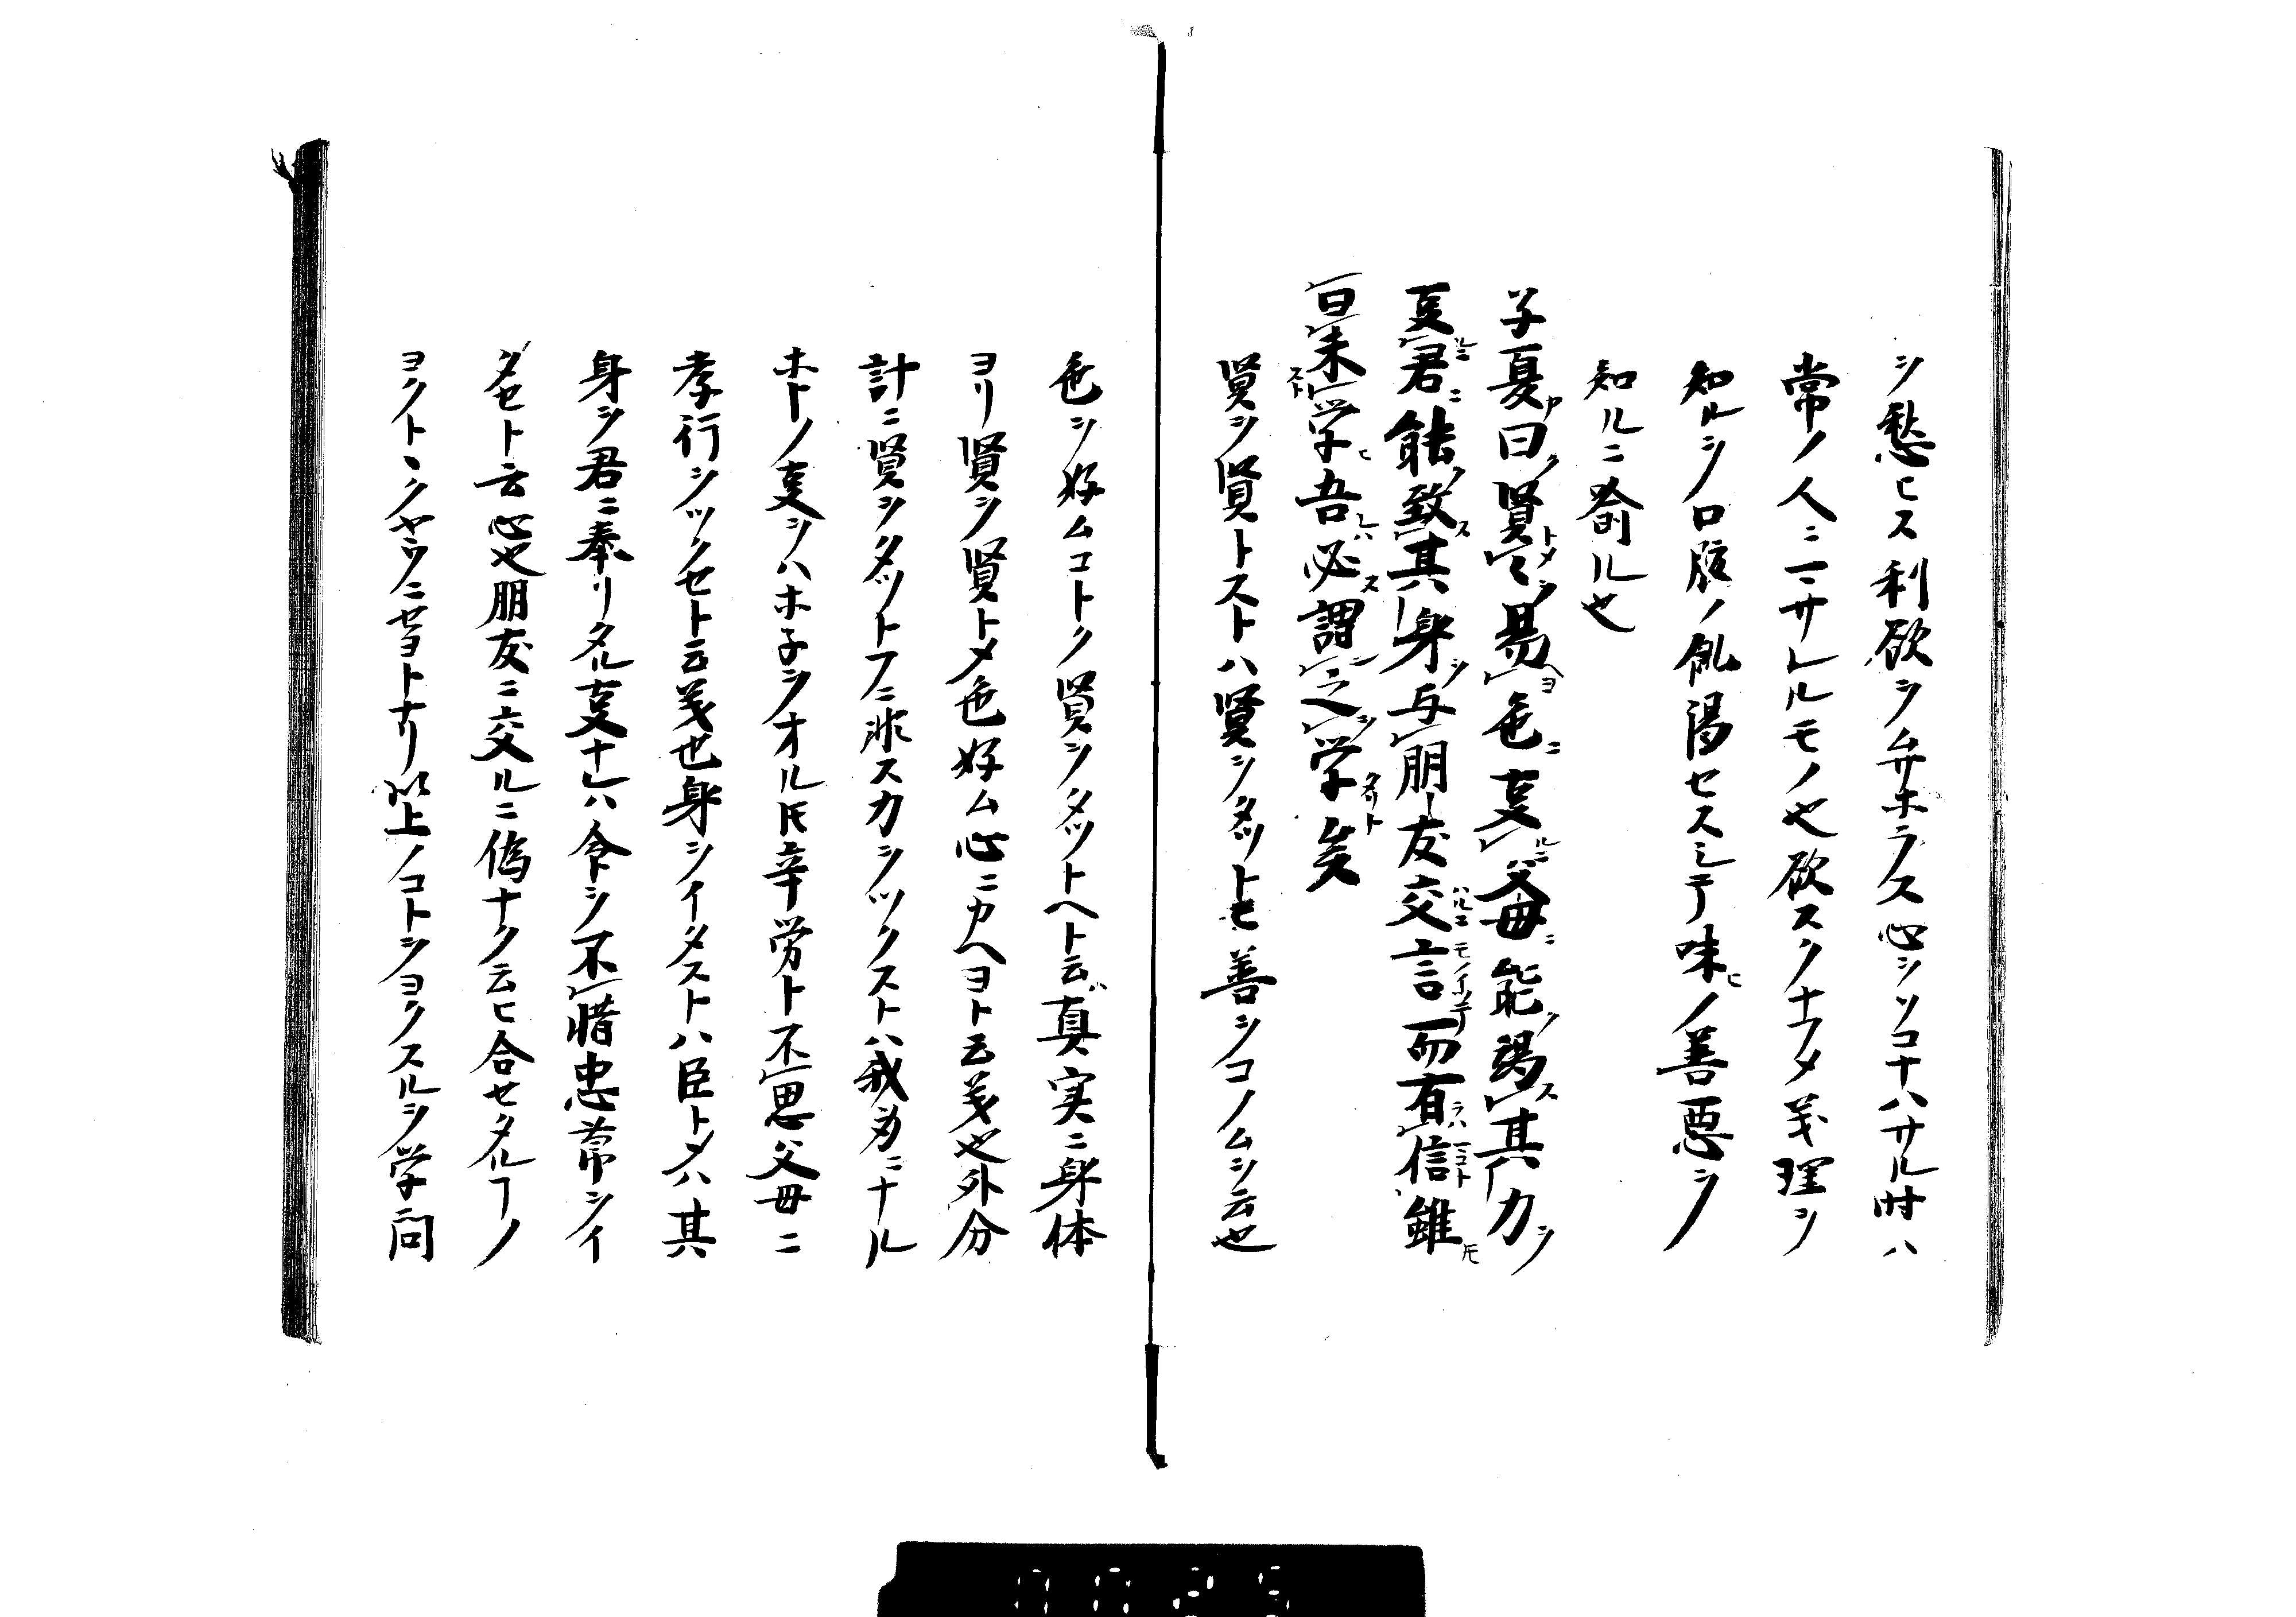 ヲ愁ヒス利欲ヲムサホラス心ヲソコナハサル時ハ
常ノ人ニコサレルモノ也欲スクナフメ義理ヲ
知ルヲ口腹ノ飢渇セスシテ味ヒノ善悪ヲ
知ルニ喩ル也
子夏曰賢々易色事父母能竭其力
事君能致其身与朋友交言而有信雖
曰未学吾必謂之学矣
賢ヲ賢トストハ賢ヲタットモ善ヲコノムヲ云也
色ヲ好ムコトク賢ヲタットヘト云真実ニ身体
ヨリ賢ヲ賢トメ色好ム心ニカヘヨト云義也外分
計ニ賢ヲタットフニ非ス力ヲツクストハ我身ニナル
ホトノ事ヲハホ子ヲオル𪜈辛労ト不思父母ニ
孝行ヲツクセト云義也身ヲイタストハ臣トメハ其
身ヲ君ニ奉リタル事ナレハ命ヲ不惜忠節ヲイ
タセト云心也朋友ニ交ルニ偽ナク云ヒ合セタルヿノ
ヨクトヽクヤウニセヨトナリ以上ノコトヲヨクスルヲ学問